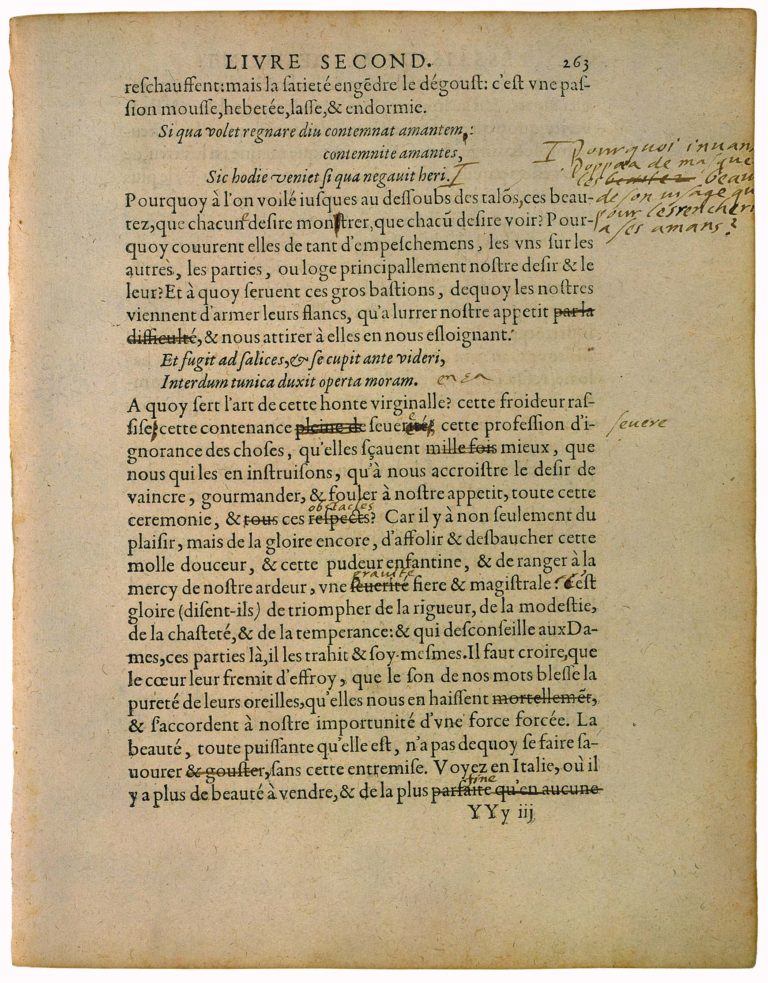 LIVRE SECOND. 263
reſchauffent:mais la ſatieté engēdre le dégouſt: c'eſt vne paſ-
ſion mouſſe,hebetée,laſſe,& endormie.
Si qua volet regnare diu contemnat amantem,:
contemnite amantes,
Sic hodie veniet ſi qua negauit heri. I
I Pourquoi inuan
Poppæa de maſquer
les beautez beau
de ſon uiſage qu
pour les rencheri
a ſes amans?
Pourquoy à l'on voilé iuſques au deſſoubs des talōs,ces beau-
tez,que chacun deſire monſtrer,que chacū deſire voir? Pour-
quoy couurent elles de tant d'empeſchemens, les vns ſur les
autres, les parties, ou loge principallement noſtre deſir & le
leur?Et à quoy ſeruent ces gros baſtions, dequoy les noſtres
viennent d'armer leurs flancs, qu'a lurrer noſtre appetit par la
difficulté, & nous attirer à elles en nous eſloignant.
Et fugit ad ſalices,& ſe cupit ante videri,
Interdum tunica duxit operta moram.
A quoy ſert l'art de cette honte virginalle? cette froideur raſ-
ſiſe, cette contenance pleine de cette profeſſion d'i-
ſeuere
gnorance des choſes, qu'elles ſçauent mille fois mieux, que
nous qui les en inſtruiſons, qu'à nous accroiſtre le deſir de
vaincre, gourmander, & fouler à noſtre appetit, toute cette
obstacles
ceremonie, & tous ces reſpects? Car il y à non ſeulement du
plaiſir, mais de la gloire encore, d'affolir & deſbaucher cette
molle douceur, & cette pudeur enfantine, & de ranger à la
grauité
mercy de noſtre ardeur, vne ſeuerité fiere & magiſtrale: c'eſt
gloire (diſent-ils) de triompher de la rigueur, de la modeſtie,
de la chaſteté,& de la temperance:& qui deſconſeille aux Da-
mes,ces parties là,il les trahit & ſoy-meſmes.Il faut croire,que
le cœur leur fremit d'effroy, que le ſon de nos mots bleſſe la
pureté de leurs oreilles,qu'elles nous en haiſſent mortellemēt,
& s'accordent à noſtre importunité d'vne force forcée. La
beauté, toute puiſſante qu'elle eſt, n'a pas dequoy ſe faire ſa-
uourer & gouſter,ſans cette entremiſe. Voyez en Italie, où il
fine
y a plus de beauté à vendre,& de la plus parfaite qu'en aucune
YYy iij